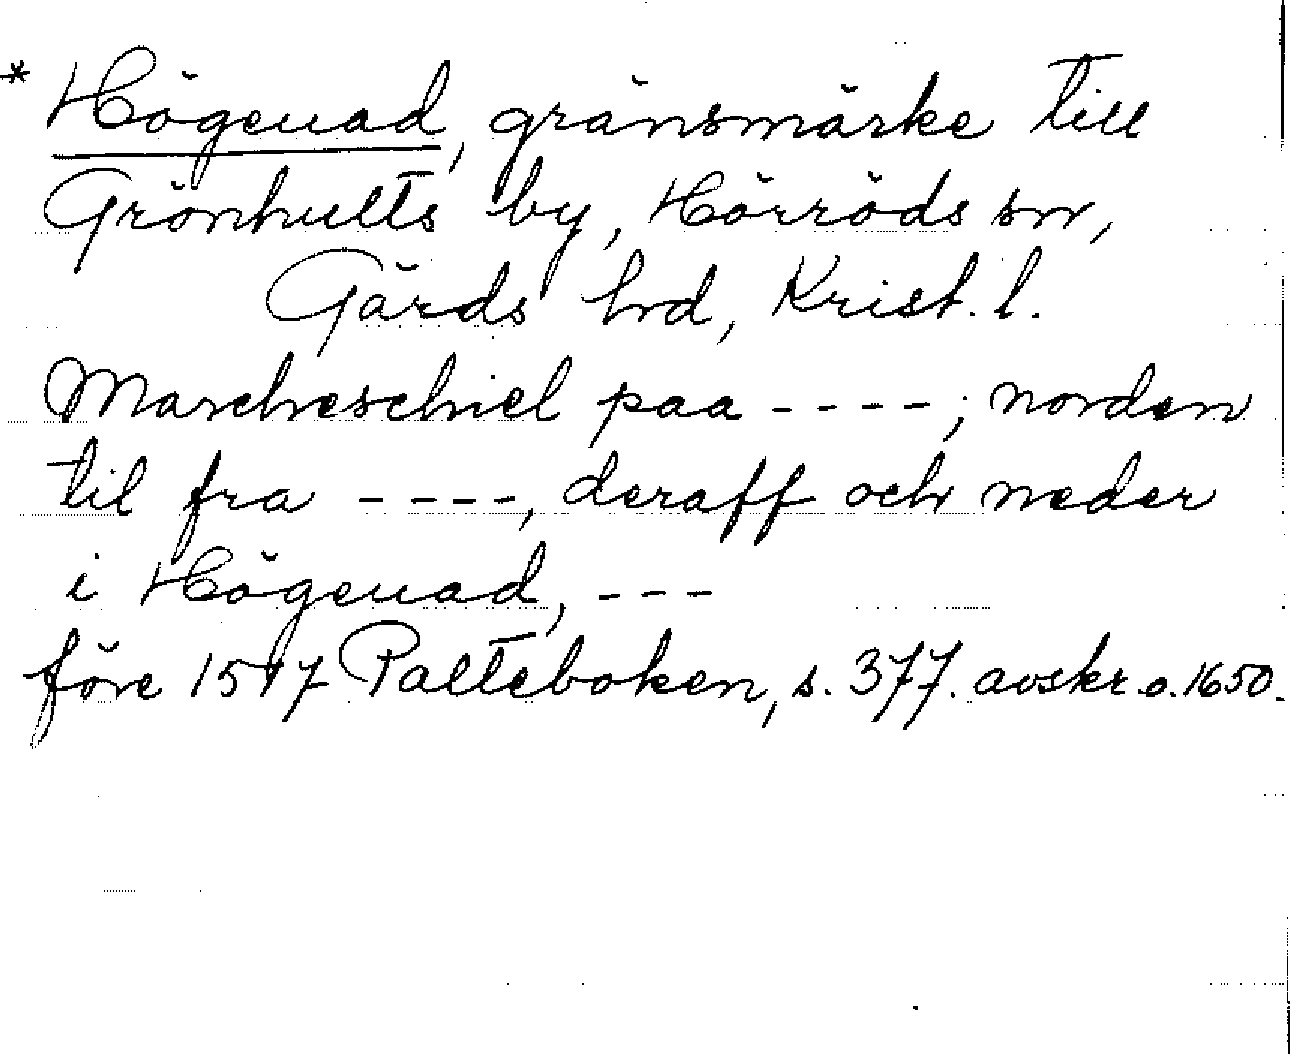 * Högeuad, gränsmärke till
Grönhults by, Hörröds sn,
Gärds hd, Krist. l.
Marcheschiel paa ----; norden
til fra ----, deraff och neder
i Högeuad, ---
före 1517 Palteboken, s. 377. avskr. o. 1650.